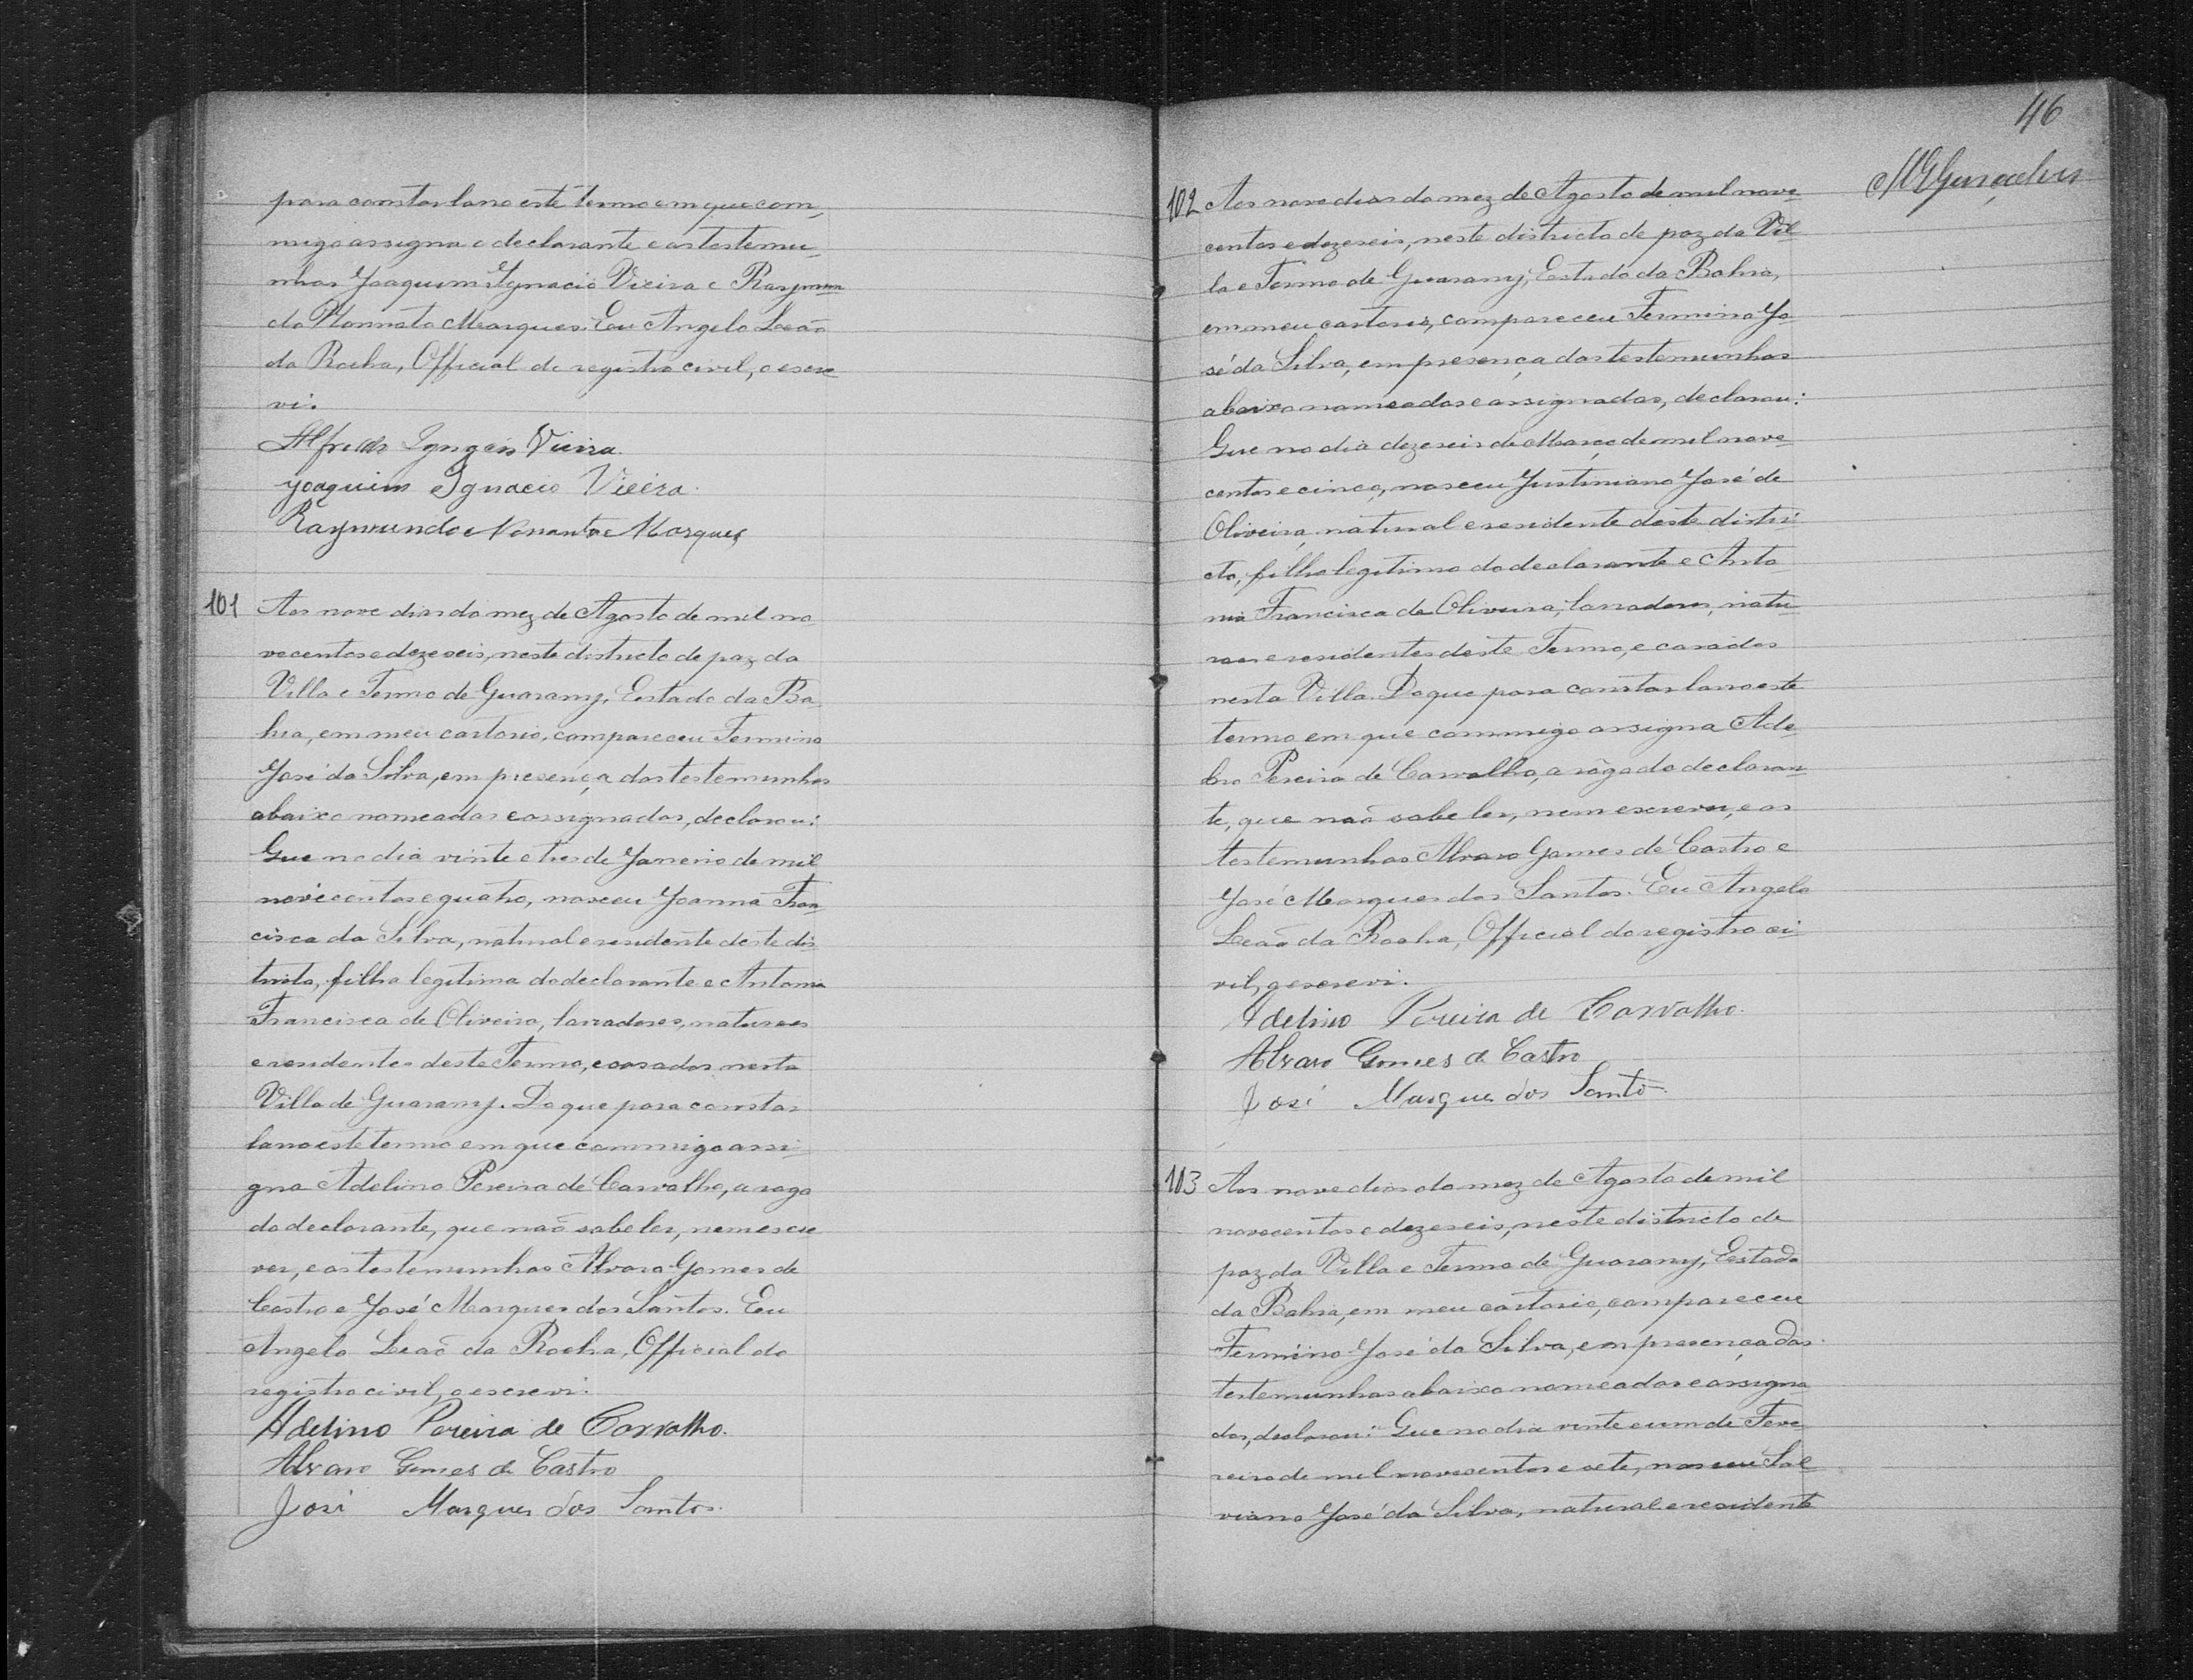 para constar lavro este termo em que com,
migo assigna o declarante e as testemu-
nhas Joaquim Ignacio Vieira e Raymun
do Nonnato Marques. Eu Angelo Leão
da Rocha, Official do registro civil, o escre
vi.
Alfredo Ignacio Vieira.
Joaquim Ignacio Vieira.
Raymundo Nonnanto Marques
101 Aos nove dias do mez de Agosto de mil no
vecentos e dezeseis, neste districto de paz da
Villa e Termo de Guarany, Estado da Ba
hia, em meu cartorio, compareceu Fermino
José da Silva, em presença das testemunhas
abaixo nomeadas e assignadas, declarou:
Que no dia vinte e tres de Janeiro de mil
novecentos e quatro, nasceu Joanna Fran
cisca da Silva, natural e residente deste dis
tricto, filha legitima do declarante e Antonia
Francisca de Oliveira, lavradores, naturaes
e residentes deste Termo, e casados nesta
Villa de Guarany. Do que para constar
lavro este termo em que commigo assi-
gna Adelino Pereira de Carvalho, a rogo
do declarante, que não sabe ler, nem escre
ver, e as testemunhas Alvaro Gomes de
Castro e José Marques dos Santos. Eu
Angelo Leão da Rocha, Official do
registro civil, o escrevi.
Adelino Pereira de Carvalho.
Alvaro Gomes de Castro
José Marques dos Santos.
46
102 Aos nove dias do mez de Agosto de mil nove
centos e dezeseis, neste districto de paz da Vil
la e Termo de Guarany, Estado da Bahia,
em meu cartorio, compareceu Fermino Jo
sé da Silva, em presença das testemunhas
abaixo nomeadas e assignadas, declarou:
Que no dia dezeseis de Março de mil nove
centos e cinco, nasceu Justiniano José de
Oliveira, natural e residente deste distri
cto, filho legitimo do declarante e Anto
nia Francisca de Oliveira, lavradores, natu
raes e residentes deste Termo, e casados
nesta Villa. Do que para constar lavro este
termo em que commigo assigna Ade
lino Pereira de Carvalho, a rôgo do declaran
te, que não sabe ler, nem escrever, e as
testemunhas Alvaro Gomes de Castro e
José Marques dos Santos. Eu Angelo
Leão da Rocha, Official do registro ci-
vil, o escrevi.
Adelino Pereira de Carvalho.
Alvaro Gomes de Castro
José Marques dos Santo
103 Aos nove dias do mez de Agosto de mil
novecentos e dezeseis, neste districto de
paz da Villa e Termo de Guarany, Estado
da Bahia, em meu cartorio, compareceu
Fermino José da Silva, em presença das
testemunhas abaixo nomeadas e assigna
das, declarou: Que no dia vinte e um de Feve
reiro de mil novecentos e sete, nasceu Sal
viano José da Silva, natural e residente